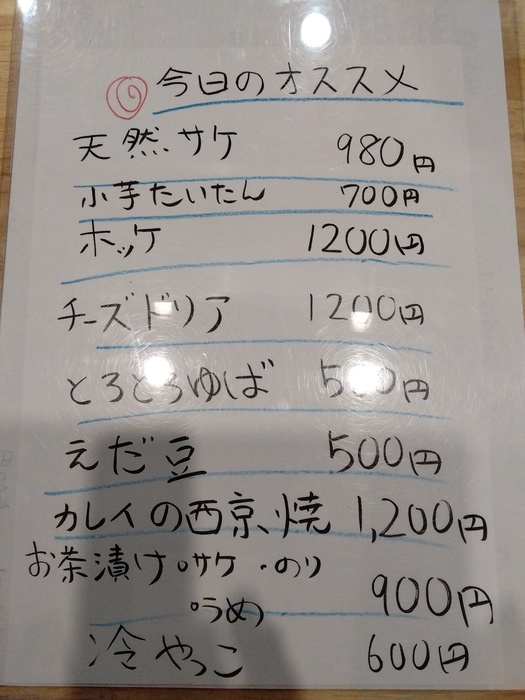 今日のオススメ
天然サケ 980円
小芋たいたん 700円
ホッケ 1200円
チーズドリア 1200円
とろとろゆば 500円
えだ豆 500円
カレイの西京焼 1,200円
お茶漬け・サケ・のり
・うめ 900円
冷やっこ 600円